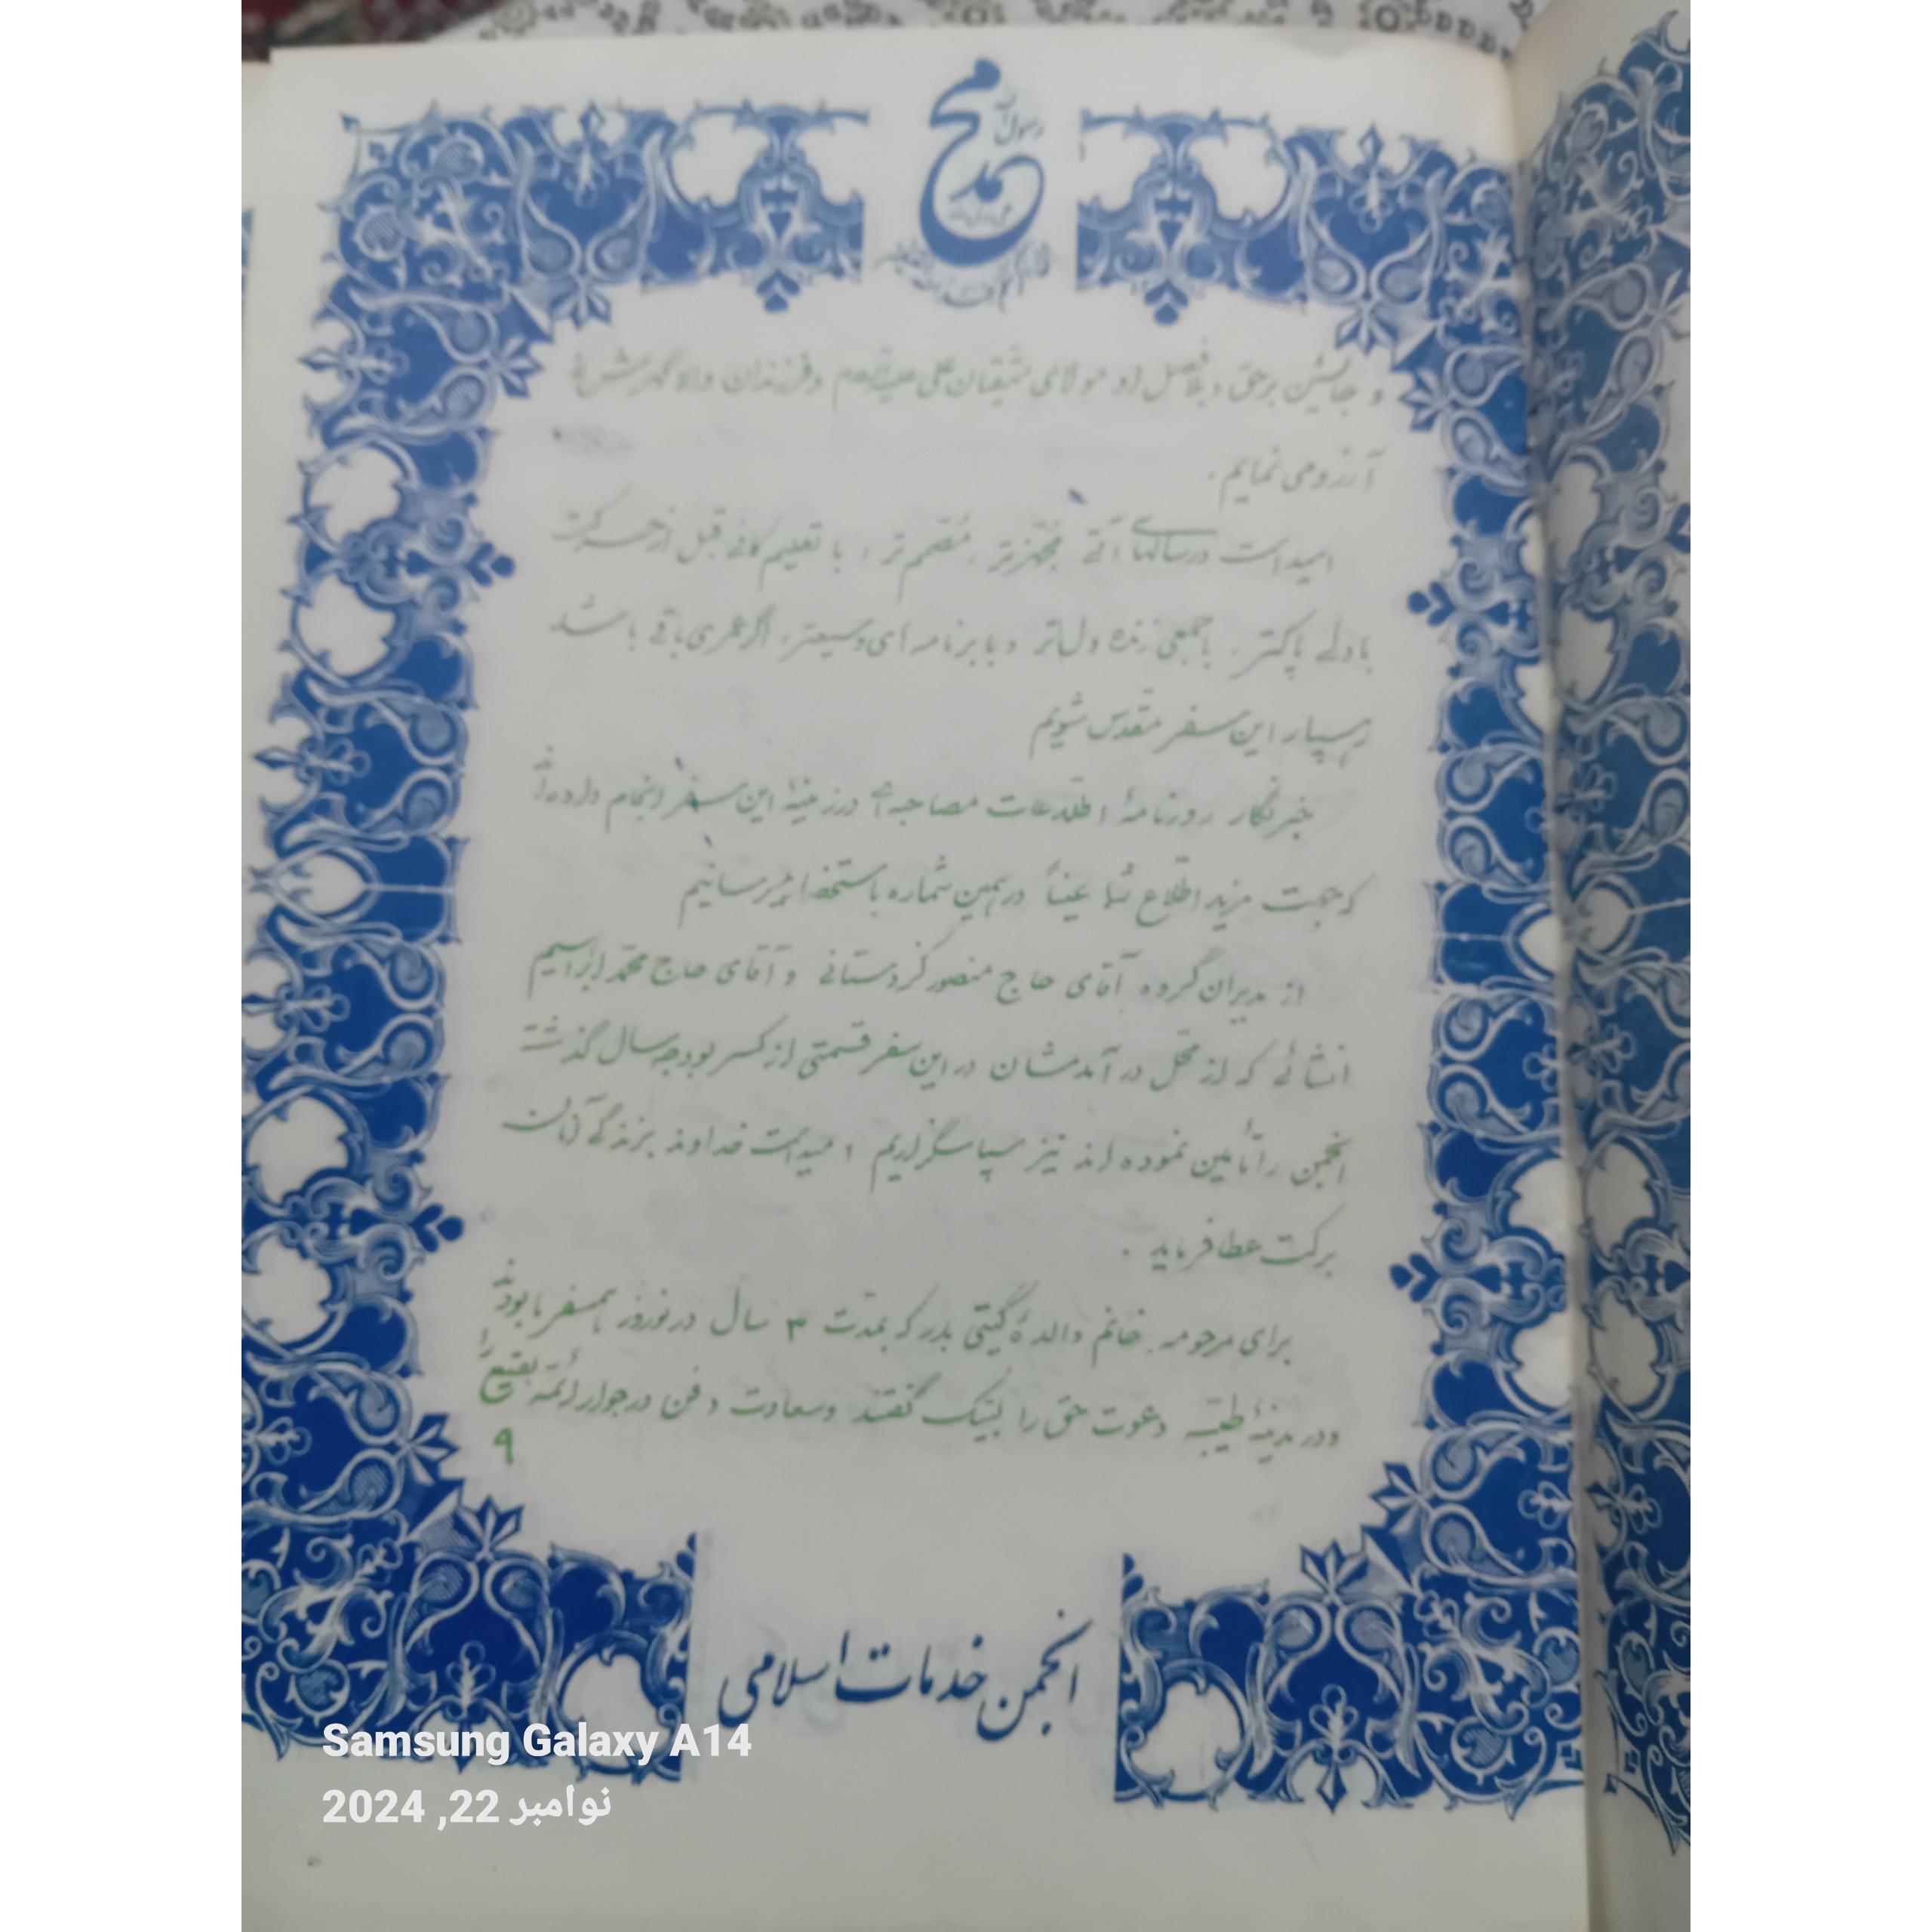 محمد
رسول
و جانشین برحق و بلافصل او مولای متقیان علی علیه‌السلام و فرزندان والاگهرش را
آرزو می نمایم .
امید است در سالهای آتی مجهزتر ، مصمم تر ، با تعلیم کافی قبل از حرکت
با دلی پاکتر ، با جمعی زنده دل‌تر و با برنامه ای وسیعتر ، اگر عمری باقی باشد
رهسپار این سفر مقدس شویم
خبرنگار روزنامهٔ اطلاعات مصاحبه ای در زمینهٔ این سفر انجام داده‌اند
که جهت مزید اطلاع شما عیناً در همین شماره باستحضار میرسانیم
از مدیران گروه آقای حاج منصور کردستانی و آقای حاج محمد ابراهیم
انشائی که از محل درآمدشان در این سفر قسمتی از کسر بودجه سال گذشته
انجمن را تأمین نموده اند نیز سپاسگزاریم ، امید است خداوند بزندگی آنان
برکت عطا فرماید .
برای مرحومه خانم والدهٔ گیتی بدر که بمدت ۳ سال در نوروز همسفر ما بودند
و در مدینهٔ طیبه دعوت حق را لبیک گفتند و سعادت دفن در جوار ائمهٔ بقیع را
۹
انجمن خدمات اسلامی
Samsung Galaxy A14
نوامبر 22, 2024